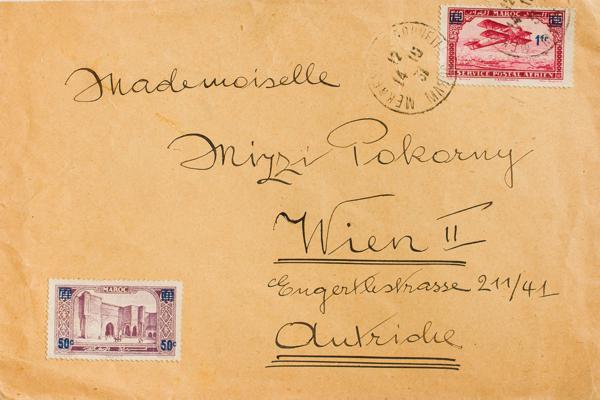 MAROC
1fc
SERVICE POSTAL AERIEN
12
14 10
31
Mademoiselle
Mizzi Pokorny
Wien II
Engerthstrasse 211/41
Autriche
MAROC
50c 50c